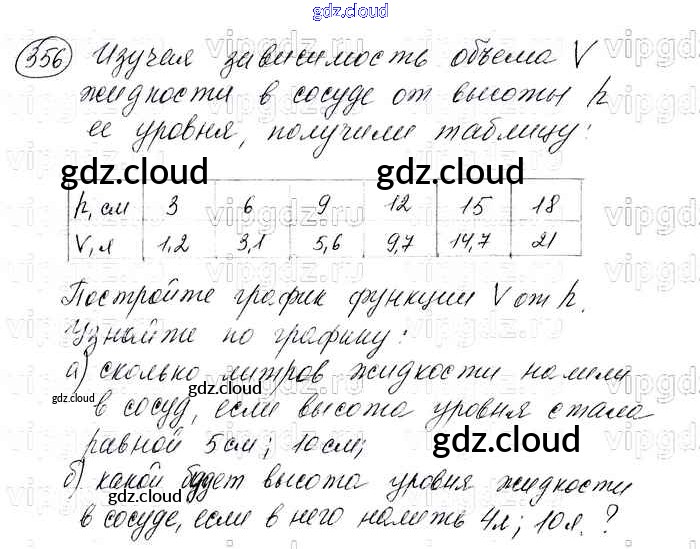 gdz.cloud
356 Изучая зависимость объема V
жидкости в сосуде от высоты h
ее уровня, получили таблицу:
gdz.cloud gdz.cloud
h, см 3 6 9 12 15 18
V, л 1,2 3,1 5,6 9,7 14,7 21
Постройте график функции V от h.
Узнайте по графику:
а) сколько литров жидкости налили
gdz.cloud gdz.cloud
в сосуд, если высота уровня стала
равной 5 см; 10 см;
gdz.cloud
б) какой будет высота уровня жидкости
gdz.cloud
в сосуде, если в него налить 4 л; 10 л.?